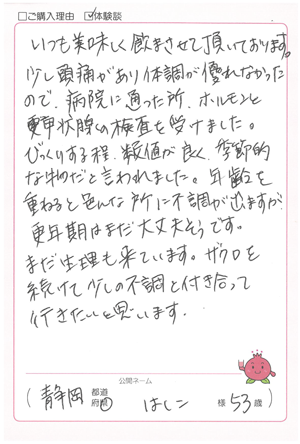 □ご購入理由 ☑体験談
いつも美味しく飲きさせて頂いております。
少し頭痛があり体調が優れなかった
ので、病院に通った所、ホルモンと
甲状腺の検査を受けました。
びっくりする程、数値が良く、季節的
な物だと言われました。年齢を
重ねると色んな所に不調が出ますが
更年期はまだ大丈夫そうです。
まだ生理も来ています。ザクロを
続けて少しの不調と付き合って
行きたいと思います。
公開ネーム
(静岡 都道府県 はしこ 様 53歳)